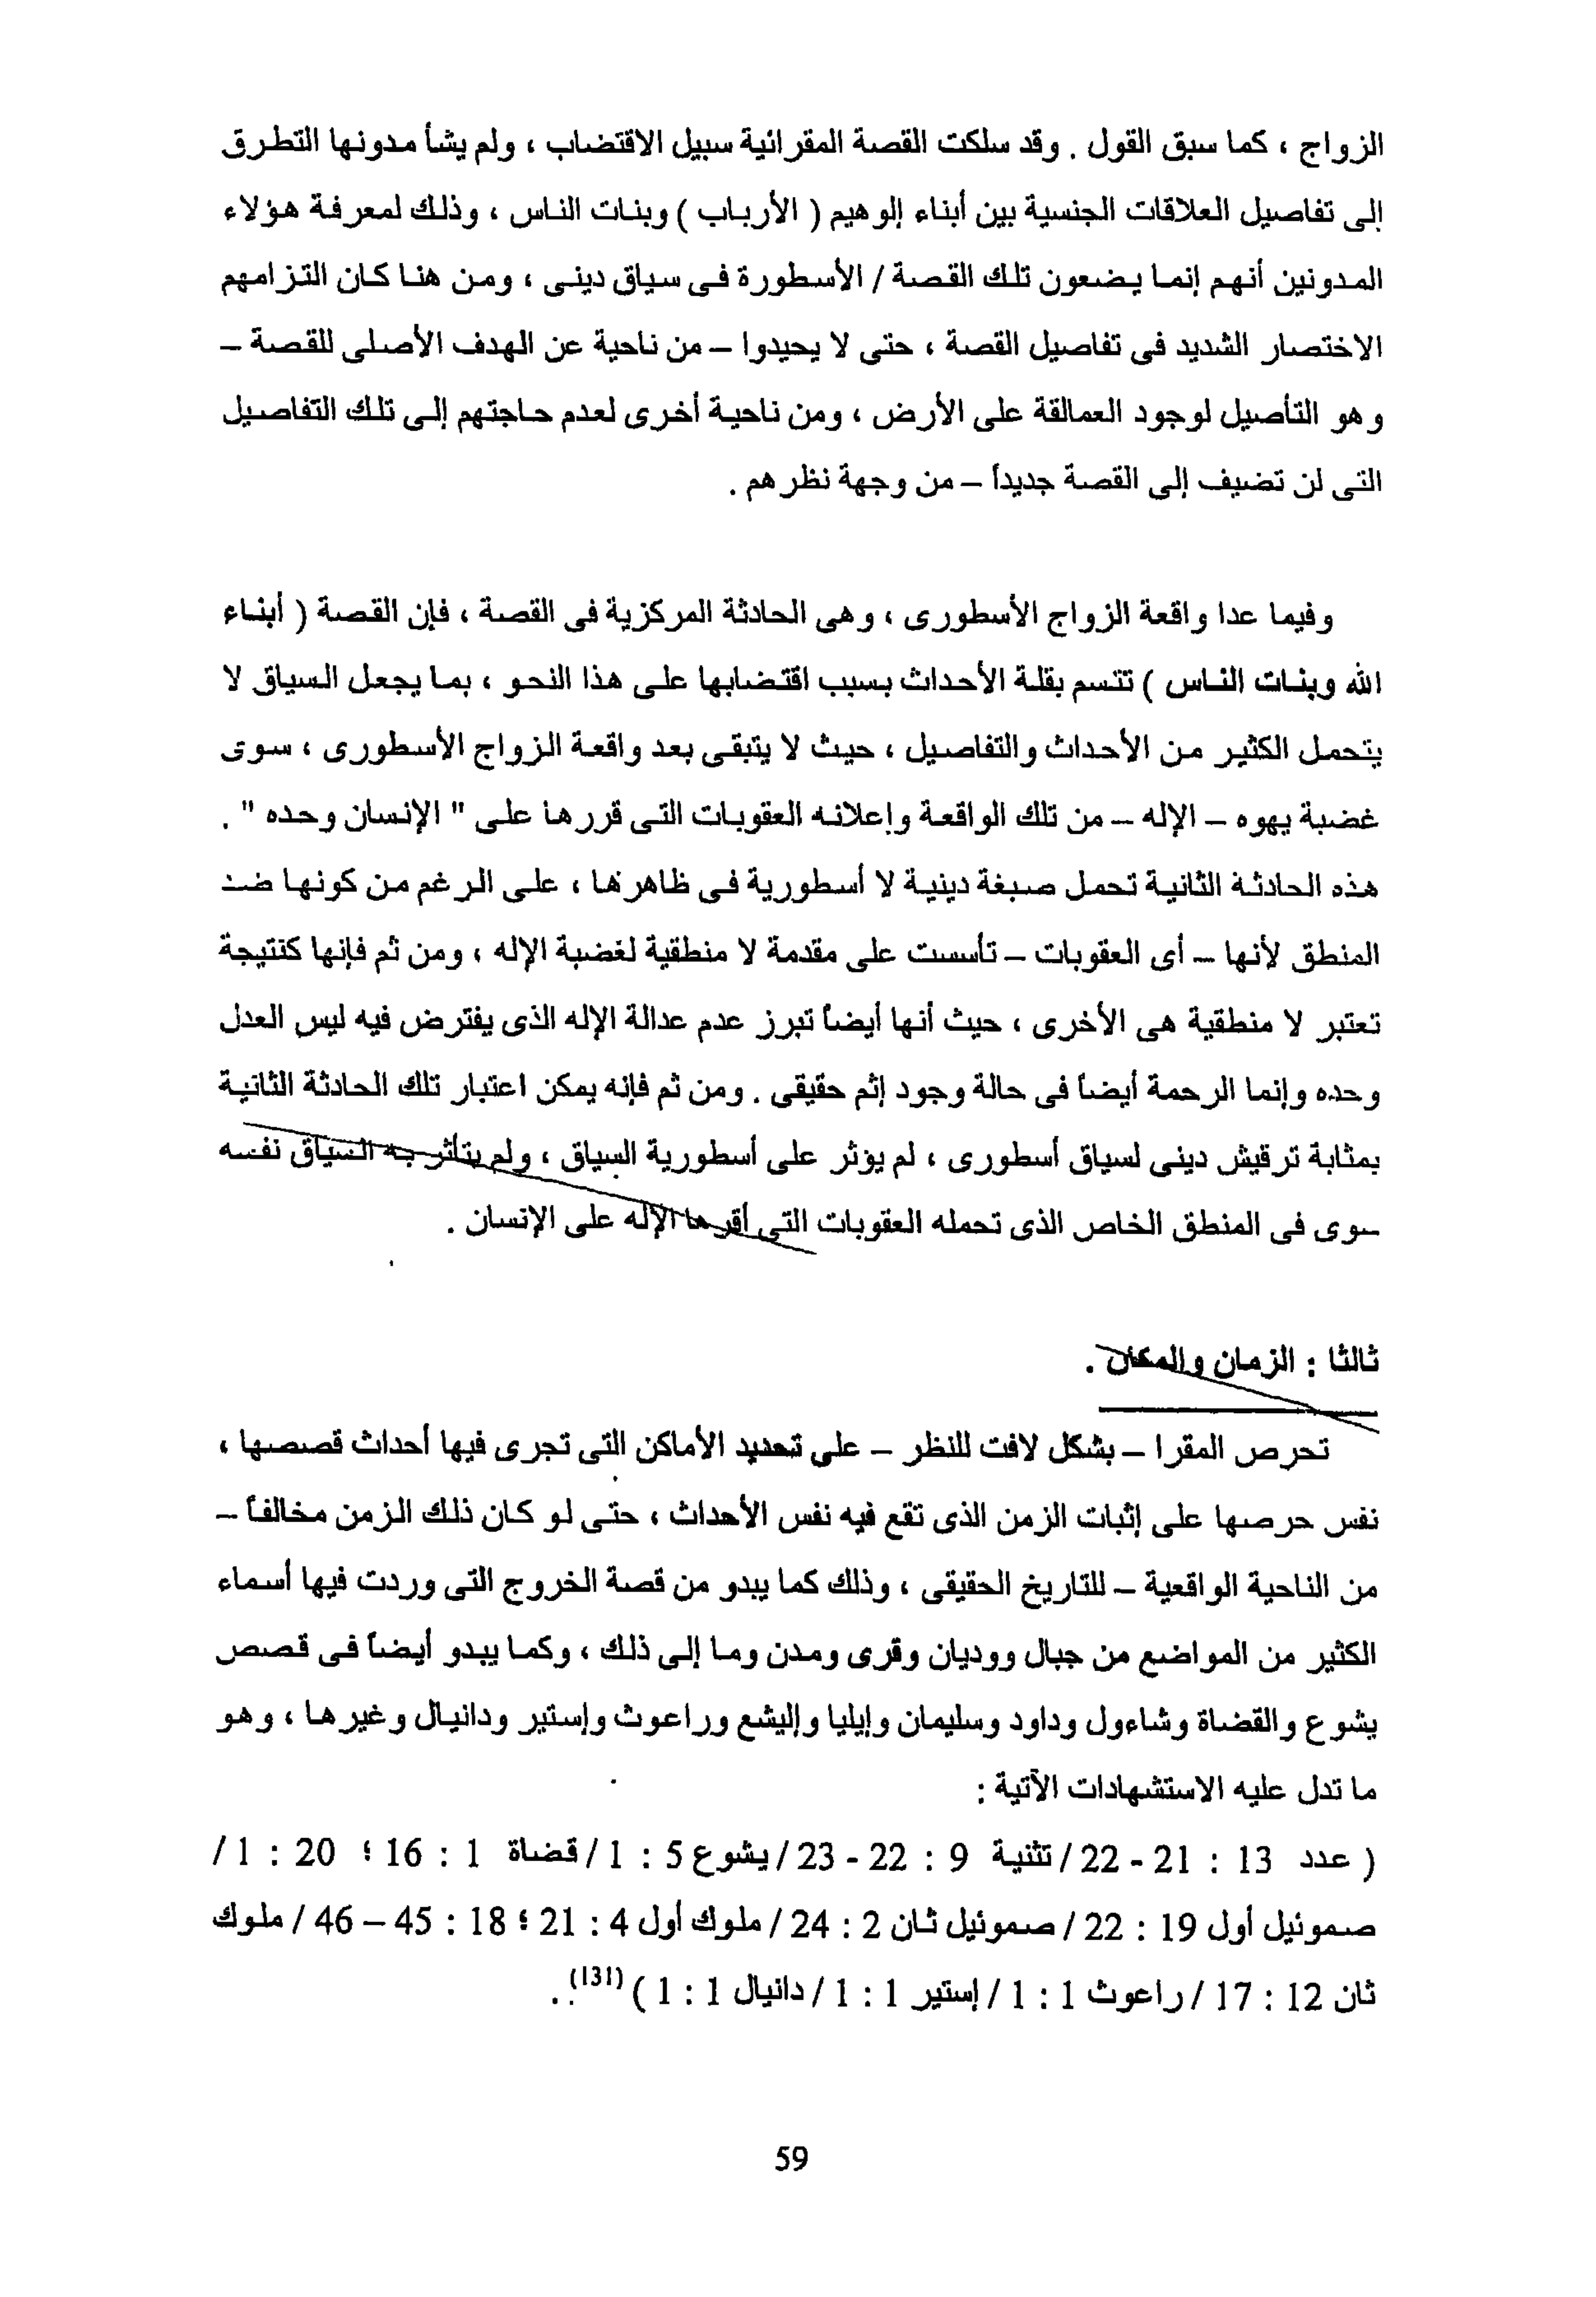 الزواج ، كما سبق القول . وقد سلكت القصة المقرائية سبيل الاقتضاب ، ولم يشأ مدونها التطرق
إلى تفاصيل العلاقات الجنسية بين أبناء إلوهيم ( الأرباب ) وبنات الناس ، وذلك لمعرفة هؤلاء
المدونين أنهم إنما يضعون تلك القصة / الأسطورة فى سياق دينى ، ومن هنا كان التزامهم
الاختصار الشديد فى تفاصيل القصة ، حتى لا يحيدوا – من ناحية عن الهدف الأصلى للقصة –
وهو التأصيل لوجود العمالقة على الأرض ، ومن ناحية أخرى لعدم حاجتهم إلى تلك التفاصيل
التى لن تضيف إلى القصة جديداً – من وجهة نظرهم .
وفيما عدا واقعة الزواج الأسطورى ، وهى الحادثة المركزية فى القصة ، فإن القصة ( أبناء
الله وبنات الناس ) تتسم بقلة الأحداث بسبب اقتضابها على هذا النحو ، بما يجعل السياق لا
يتحمل الكثير من الأحداث والتفاصيل ، حيث لا يتبقى بعد واقعة الزواج الأسطورى ، سوى
غضبة يهوه – الإله – من تلك الواقعة وإعلانه العقوبات التى قررها على " الإنسان وحده " .
هذه الحادثة الثانية تحمل صبغة دينية لا أسطورية فى ظاهرها ، على الرغم من كونها ضد
المنطق لأنها – أى العقوبات – تأسست على مقدمة لا منطقية لغضبة الإله ، ومن ثم فإنها كنتيجة
تعتبر لا منطقية هى الأخرى ، حيث أنها أيضاً تبرز عدم عدالة الإله الذى يفترض فيه ليس العدل
وحده وإنما الرحمة أيضاً فى حالة وجود إثم حقيقى . ومن ثم فإنه يمكن اعتبار تلك الحادثة الثانية
بمثابة ترقيش دينى لسياق أسطورى ، لم يؤثر على أسطورية السياق ، ولم يتأثر به السياق نفسه
سوى فى المنطق الخاص الذى تحمله العقوبات التى أقرها الإله على الإنسان .
ثالثا : الزمان والمكان .
تحرص المقرا – بشكل لافت للنظر – على تحديد الأماكن التى تجرى فيها أحداث قصصها ،
نفس حرصها على إثبات الزمن الذى تقع فيه نفس الأحداث ، حتى لو كان ذلك الزمن مخالفاً –
من الناحية الواقعية – للتاريخ الحقيقى ، وذلك كما يبدو من قصة الخروج التى وردت فيها أسماء
الكثير من المواضع من جبال ووديان وقرى ومدن وما إلى ذلك ، وكما يبدو أيضاً فى قصص
يشوع والقضاة وشاءول وداود وسليمان وإيليا وإليشع وراعوث وإستير ودانيال وغيرها ، وهو
ما تدل عليه الاستشهادات الآتية :
( عدد 13 : 21 - 22 / تثنية 9 : 22 - 23 / يشوع 5 : 1 / قضاة 1 : 16 ؛ 20 : 1 /
صموئيل أول 19 : 22 / صموئيل ثان 2 : 24 / ملوك أول 4 : 21 ؛ 18 : 45 – 46 / ملوك
ثان 12 : 17 / راعوث 1 : 1 / إستير 1 : 1 / دانيال 1 : 1 ) (131) .
59